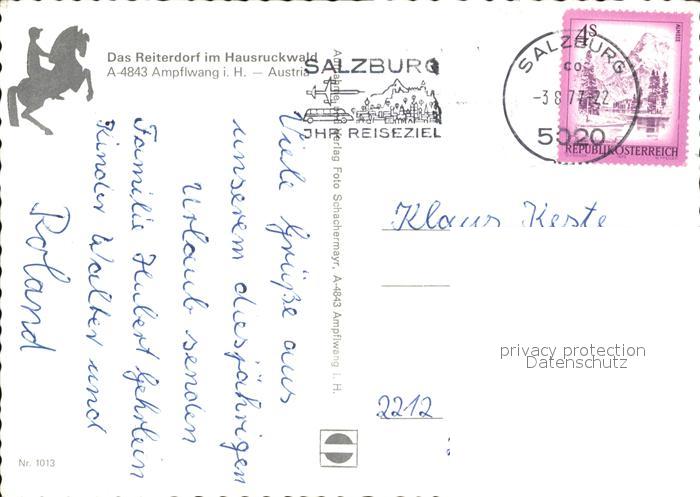 Das Reiterdorf im Hausruckwald
A-4843 Ampflwang i. H. — Austria
SALZBURG
IHR REISEZIEL
SALZBURG
co
-3 8 77-22
5020
4s
ALMSEE
REPUBLIK ÖSTERREICH
Viele Grüße aus
unserem diesjährigen
Urlaub senden
Familie Hubert Gehrlein
Kinder Walter und
Roland
Verlag Foto Schachermayr, A-4843 Ampflwang i. H.
Klaus Keste
privacy protection
Datenschutz
2212
Nr. 1013